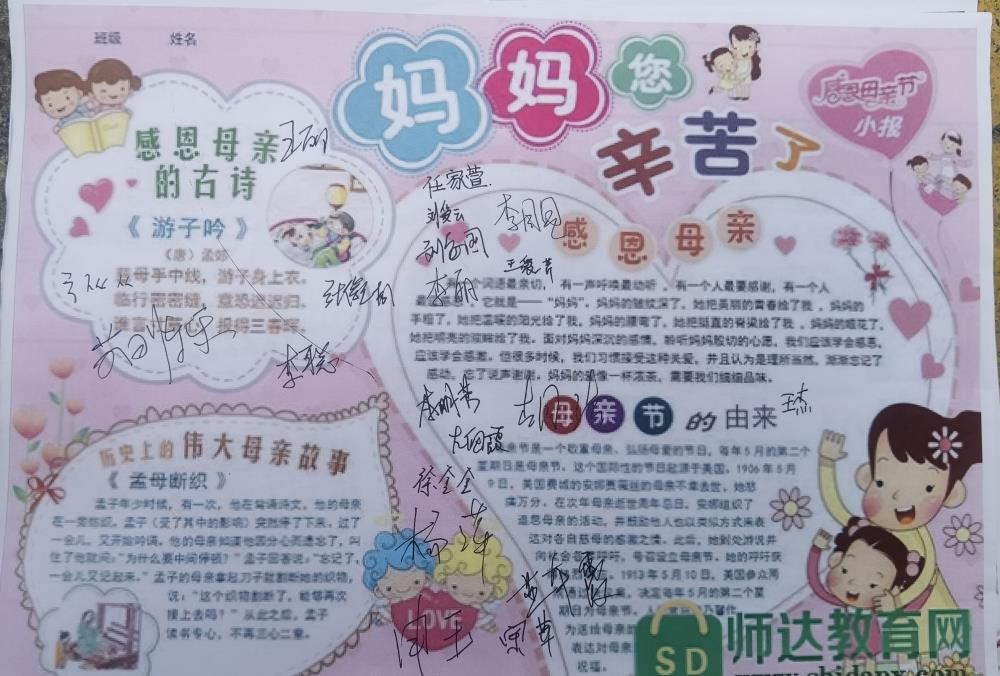 班级 姓名
妈妈您
辛苦了
感恩母亲节
小报
感恩母亲
的古诗
《 游子吟 》
（唐）孟郊
慈母手中线，游子身上衣。
临行密密缝，意恐迟迟归。
报得三春晖。
王丽
李聪
任家萱
李丽
王爱芹
感恩母亲
有一个词语最亲切，有一声呼唤最动听，有一个人最要感谢，有一个人
它就是——“妈妈”。妈妈的皱纹深了，她把美丽的青春给了我，妈妈的
手粗了，她把温暖的阳光给了我，妈妈的腰弯了，她把挺直的脊梁给了我，妈妈的眼花了，
她把明亮的双眸给了我。面对妈妈深沉的感情。聆听妈妈殷切的心愿，我们应该学会感恩。
应该学会感激。但很多时候，我们习惯接受这种关爱。并且认为是理所当然，渐渐忘记了
感动。忘了说声谢谢。妈妈的爱像一杯浓茶，需要我们细细品味。
母亲节的由来
王杰
徐全全
杨莲
亲节是一个敬重母亲、弘扬母爱的节日，每年5月的第二个
星期日是母亲节。这个国际性的节日起源于美国。1906年5月
9日，美国费城的安娜贾薇丝的母亲不幸去世，她悲
痛万分，在次年母亲逝世周年忌日，安娜组织了
追思母亲的活动，并鼓励他人也以类似方式来表
达对各自慈母的感激之情。此后，她到处游说并
向社会各界呼吁，号召设立母亲节。她的呼吁获
1913年5月10日，美国参众两
决定每年5月的第二个
星期日为母亲节。
为送给母亲的
表达对母亲
祝福。
历史上的伟大母亲故事
《 孟母断织 》
孟子年少时候，有一次，他在背诵诗文，他的母亲
在一旁纺织。孟子（受了其中的影响）突然停了下来。过了
一会儿，又开始吟诵。他的母亲知道他因分心而遗忘了，叫
住了他就问：“为什么要中间停顿？”孟子回答说：“忘记了，
一会儿又记起来。”孟子的母亲拿起刀子就割断她的织物，
说：“这个织物断了，能够再次
接上去吗？” 从此之后，孟子
读书专心，不再三心二意。
LOVE
SD
师达教育网